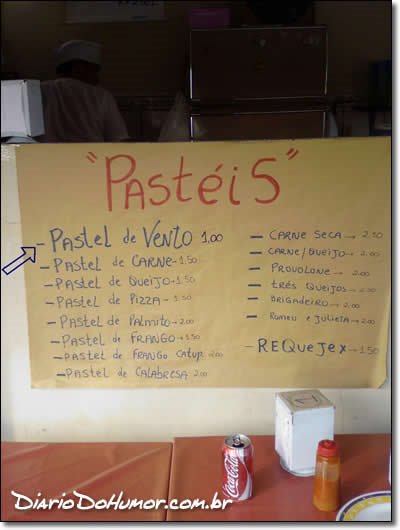 "PASTÉIS"
- PASTEL de VENTO 1,00
- PASTEL de CARNE - 1.50
- PASTEL de QUEIJO - 1.50
- PASTEL de PIZZA - 1.50
- PASTEL de PALMITO - 2.00
- PASTEL de FRANGO - 1.50
- PASTEL de FRANGO CATUP. 2.00
- PASTEL de CALABRESA 2.00
- CARNE SECA - 2.50
- CARNE/QUEIJO - 2.00
- PROVOLONE - 2.00
- TRÊS QUEIJOS - 2.50
- BRIGADEIRO - 2.00
- ROMEU e JULIETA - 2.00
- REQUEJEX - 1.50
Coca-Cola
DiarioDoHumor.com.br